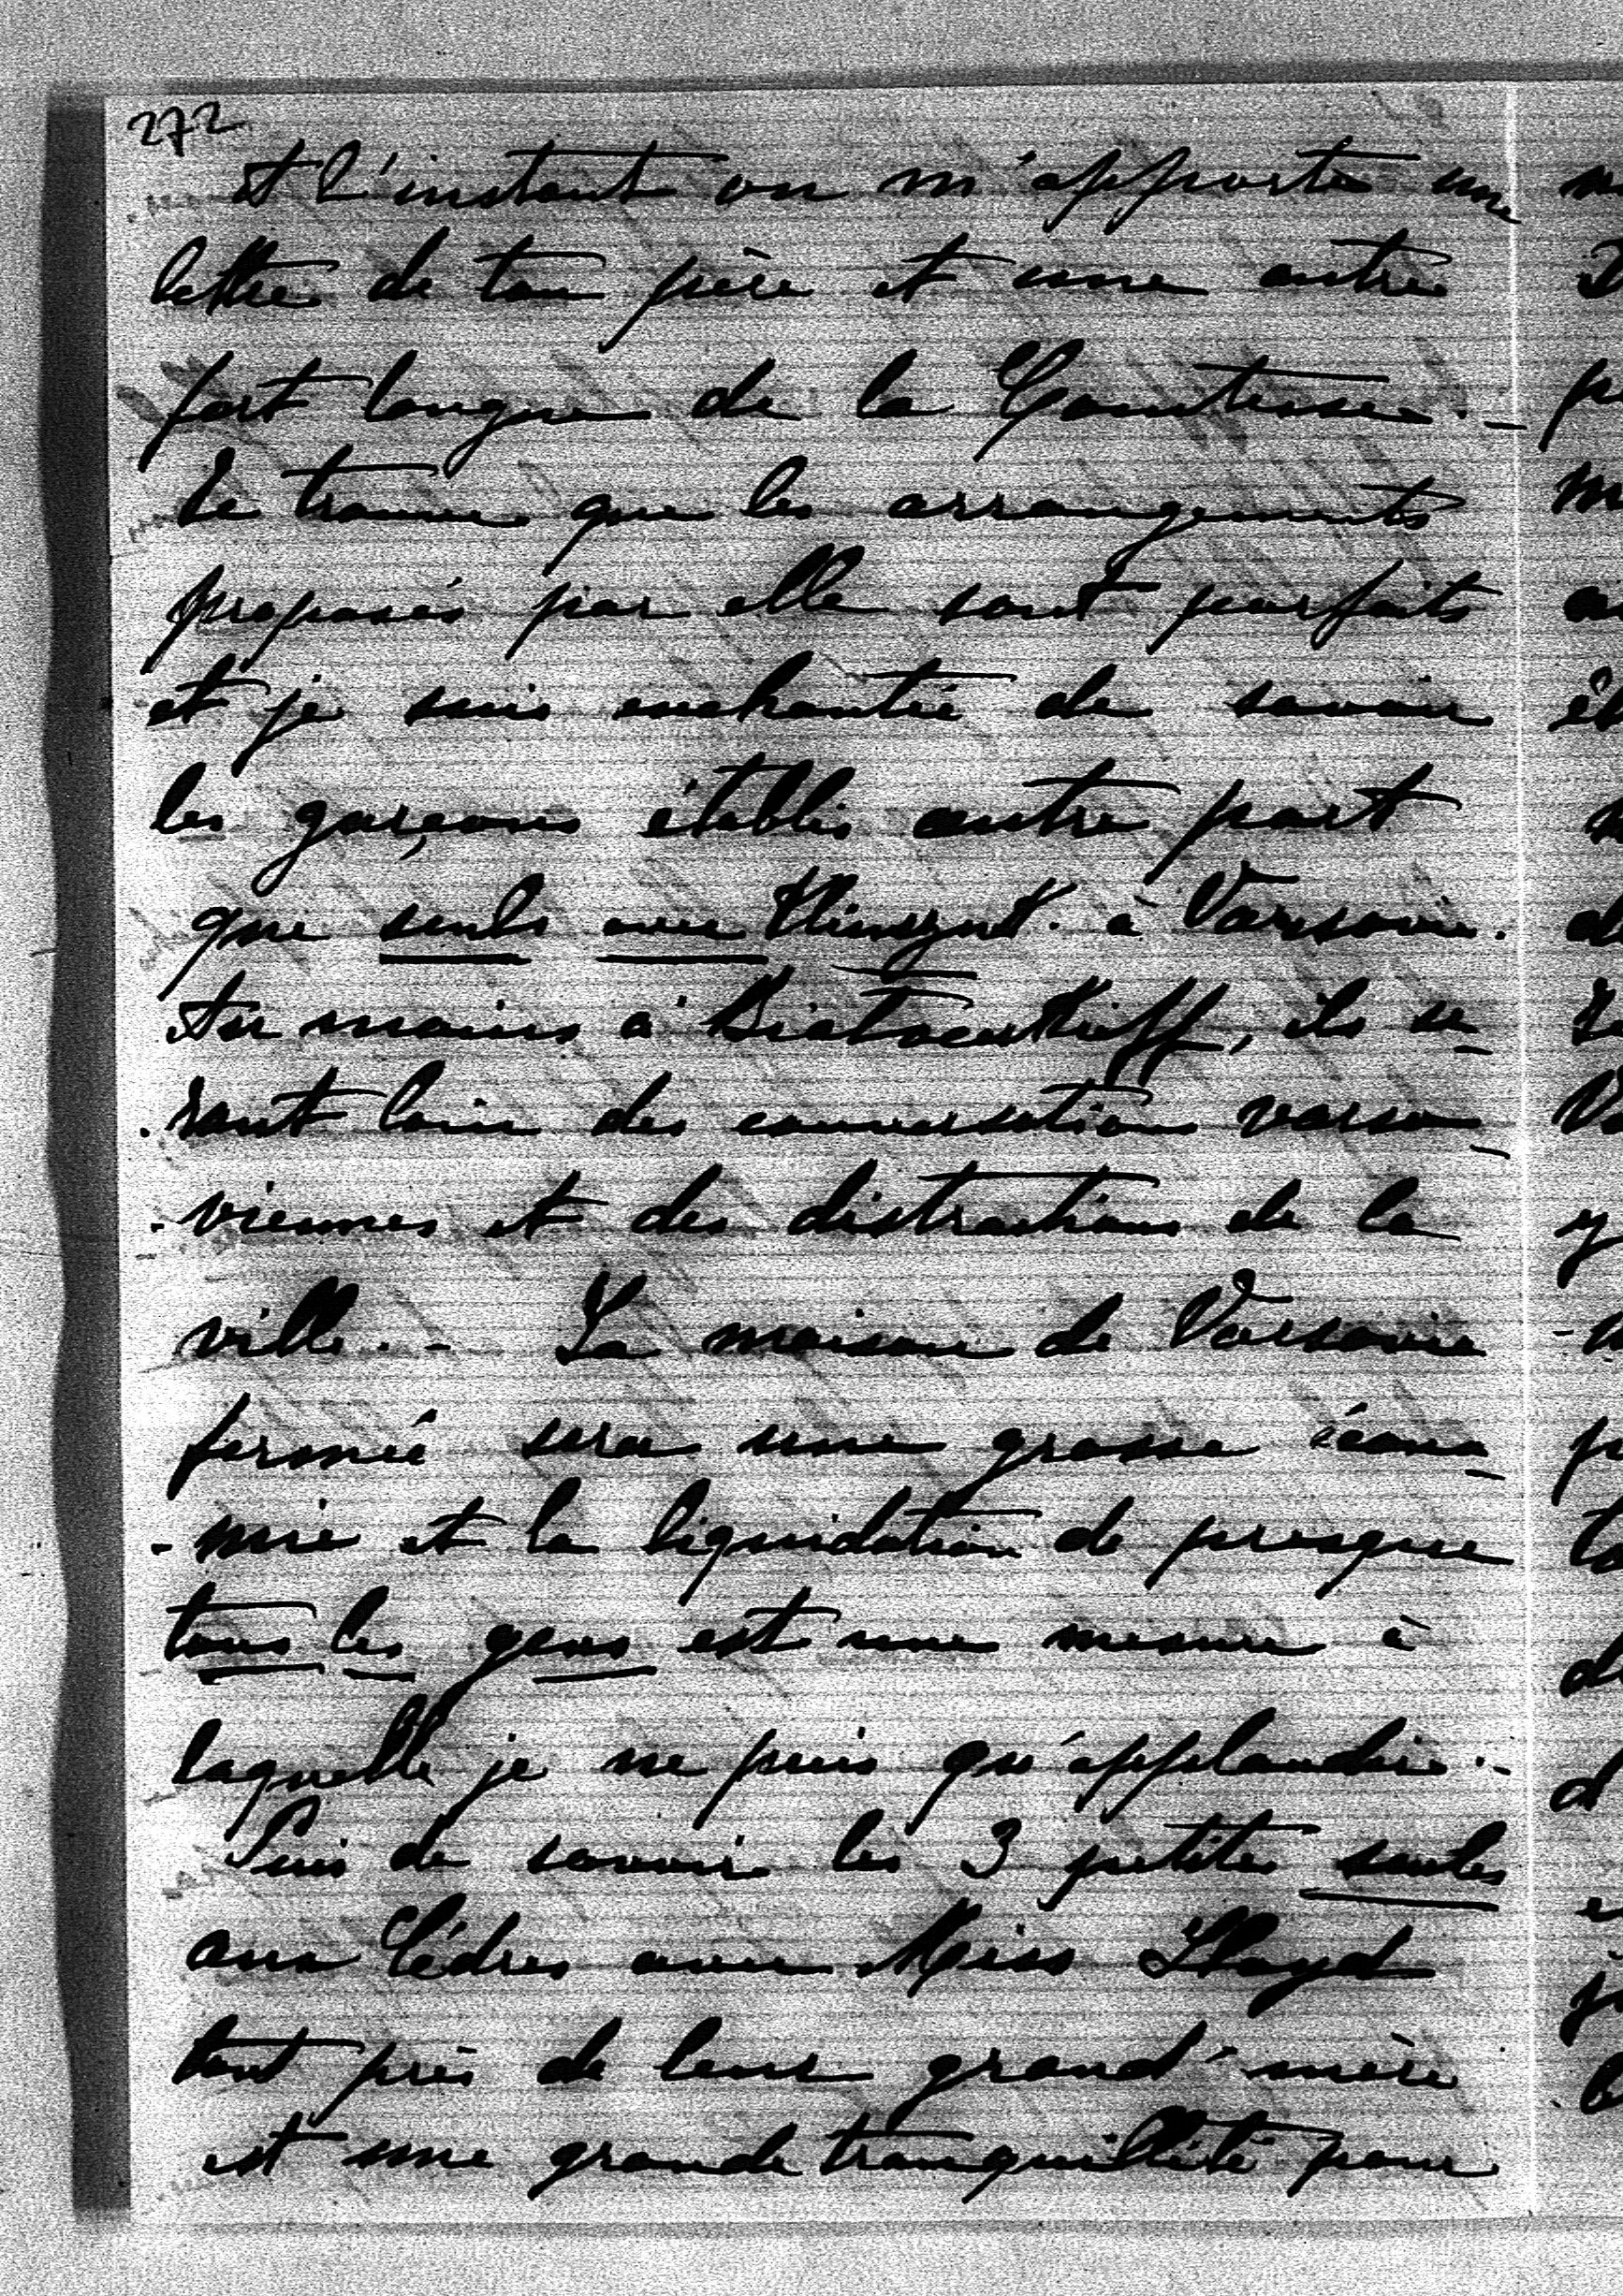 272
A l'instant on m'apporte une
lettre de ton père et une autre
fort longue de la Comtesse. _
Je trouve que les arrangements
proposés par elle sont parfaits
et je suis enchantée de savoir
les garçons établis autre part
que seuls avec à Varsovie.
Au moins à, ils se_
-ront loin des conversations varso_
-viennes et des distractions de la
ville. - La maison de Varsovie
fermée sera une grosse écono_
-mie et la liquidation de presque
tous les gens est une mesure à
laquelle je ne puis qu'applaudir. -
Puis de savoir les 3 petites seules
aux Cèdres avec Miss Lloyd
tout près de leur grand'mère
est une grande tranquillité pour